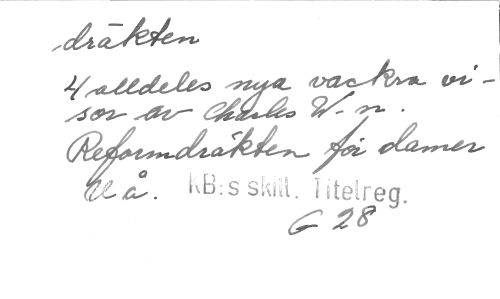 dräkten
4 alldeles nya vackra vi-
sor av Charles W-n.
Reformdräkten för damer
U å. KB:s skill. Titelreg.
G 28